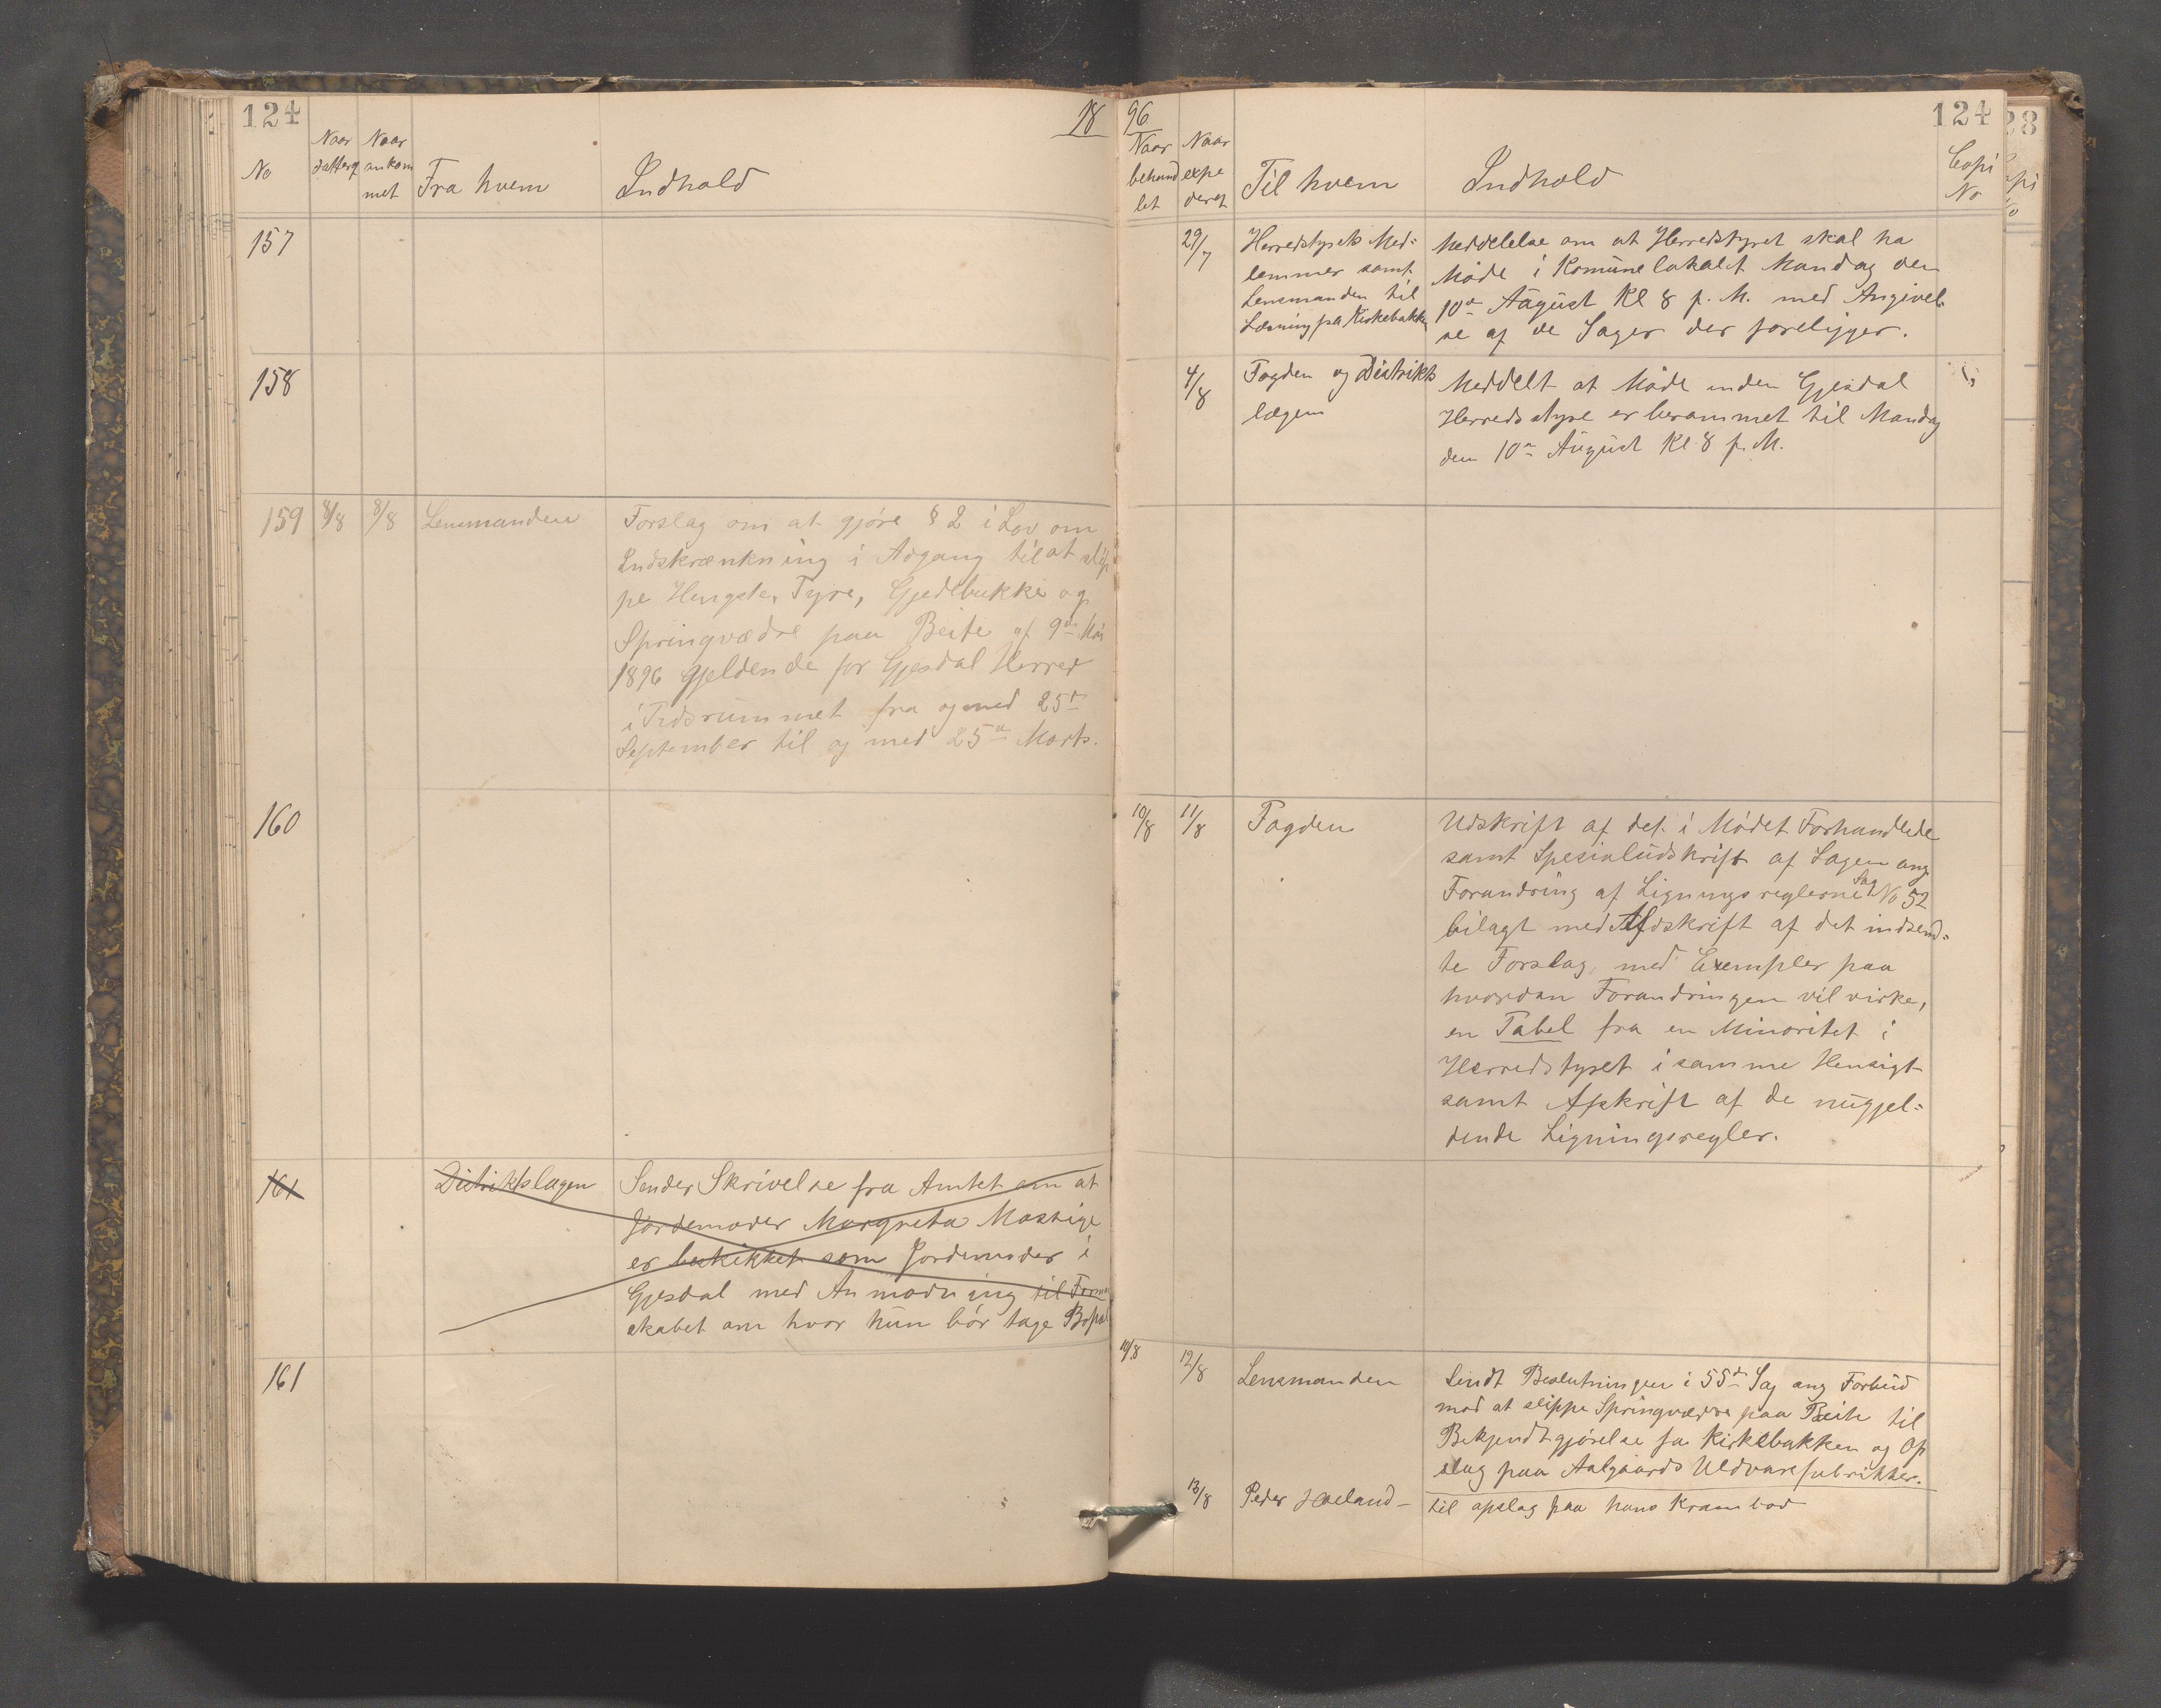 124
18
No
Naar datterz
Naar ankom met
Fra hvem
Indhold
157
158
159 8/8 8/8 Lensmanden
Forslag om at gjøre § 2 i Lov om
Indskrænkning i Adgang til at slip
pe Hengste, Tyre, Gjedebukke og
Springvædre paa Beite af 9de Mai
1896 gjeldende for Gjesdal Herred
i Tidsrummet fra og med 25d
September til og med 25de Marts.
160
161 Distriktslægen
Sender Skrivelse fra Amtet om at
Jordemoder Margreta
er beskikket som Jordemoder i
Gjesdal med Anmodning til Form
skabet om hvor hun bør tage Bopæl
161
96
124
Naar behand let
Naar expe deret
Til hvem
Indhold
Copi No
29/7
Herredstyrets Med=
lemmer samt
Lensmanden til
Læsning på Kirkebakken
Meddelelse om at Herredstyret skal ha
Møde i Komunelokalet Mandag den
10de August Kl 8 p. M. med Angivel
se af de Sager der foreligger.
4/8
Fogden og Distrikts
lægen
Meddelt at Møde inden Gjesdal
Herredsstyre er berammet til Mandag
den 10de August Kl 8 p. M.
10/8 11/8 Fogden
Udskrift af det i Mødet Forhandlede
samt Spesialudskrift af Sagen ang
Forandring af Ligningsreglerne Sag No 52
bilagt med Afdskrift af det indsend=
te Forslag, med Exempler paa
hvordan Forandringen vil virke,
en Tabel fra en Minoritet i
Herredstyret i samme Hensigt
samt Afskrift af de nugjel=
dende Ligningsregler.
10/8 12/8 Lensmanden
Sendt Beslutningen i 55de Sag ang Forbud
mod at slippe Springvædre paa Beite til
Bekjendtgjørelse fra Kirkebakken og Op
slag paa Aalgaards Uldvarefabrikker.
13/8 Peder Høeland -
til opslag paa hans Krambod